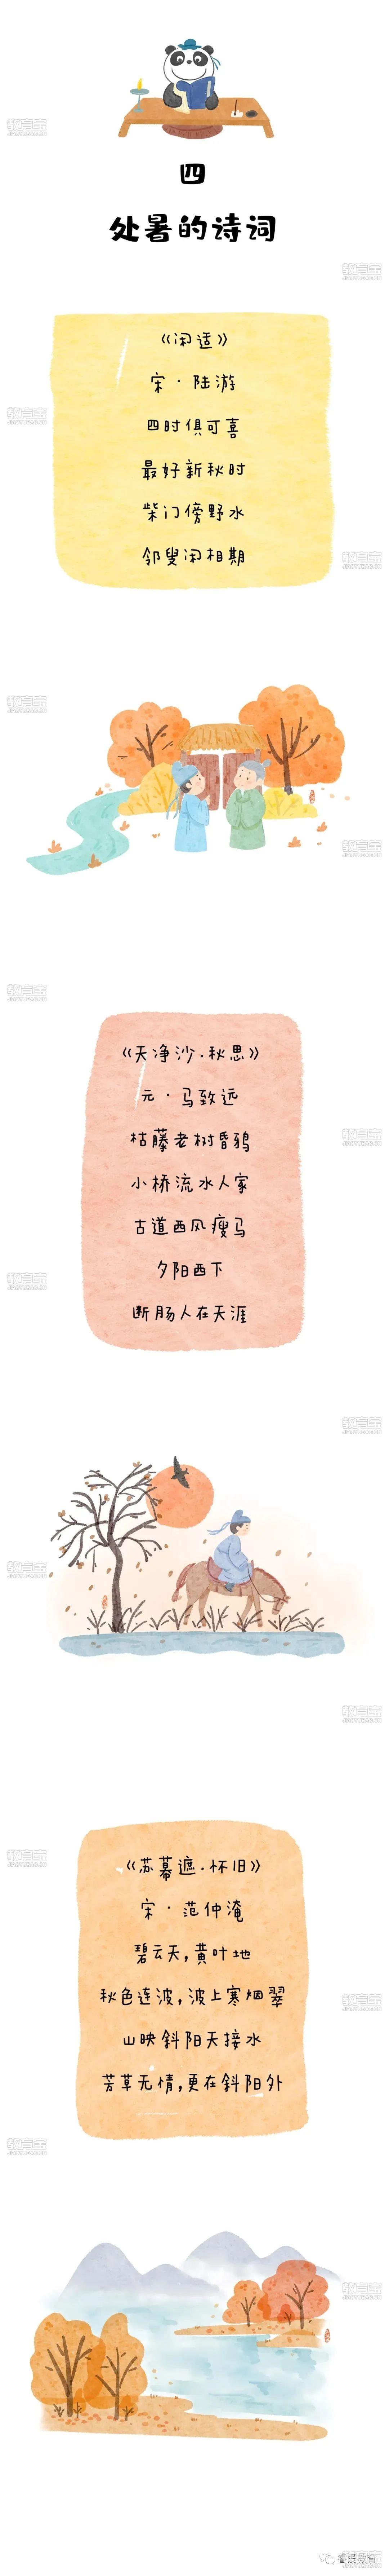 四
处暑的诗词
《闲适》
宋·陆游
四时俱可喜
最好新秋时
柴门傍野水
邻叟闲相期
《天净沙·秋思》
元·马致远
枯藤老树昏鸦
小桥流水人家
古道西风瘦马
夕阳西下
断肠人在天涯
《苏幕遮·怀旧》
宋·范仲淹
碧云天,黄叶地
秋色连波,波上寒烟翠
山映斜阳天接水
芳草无情,更在斜阳外